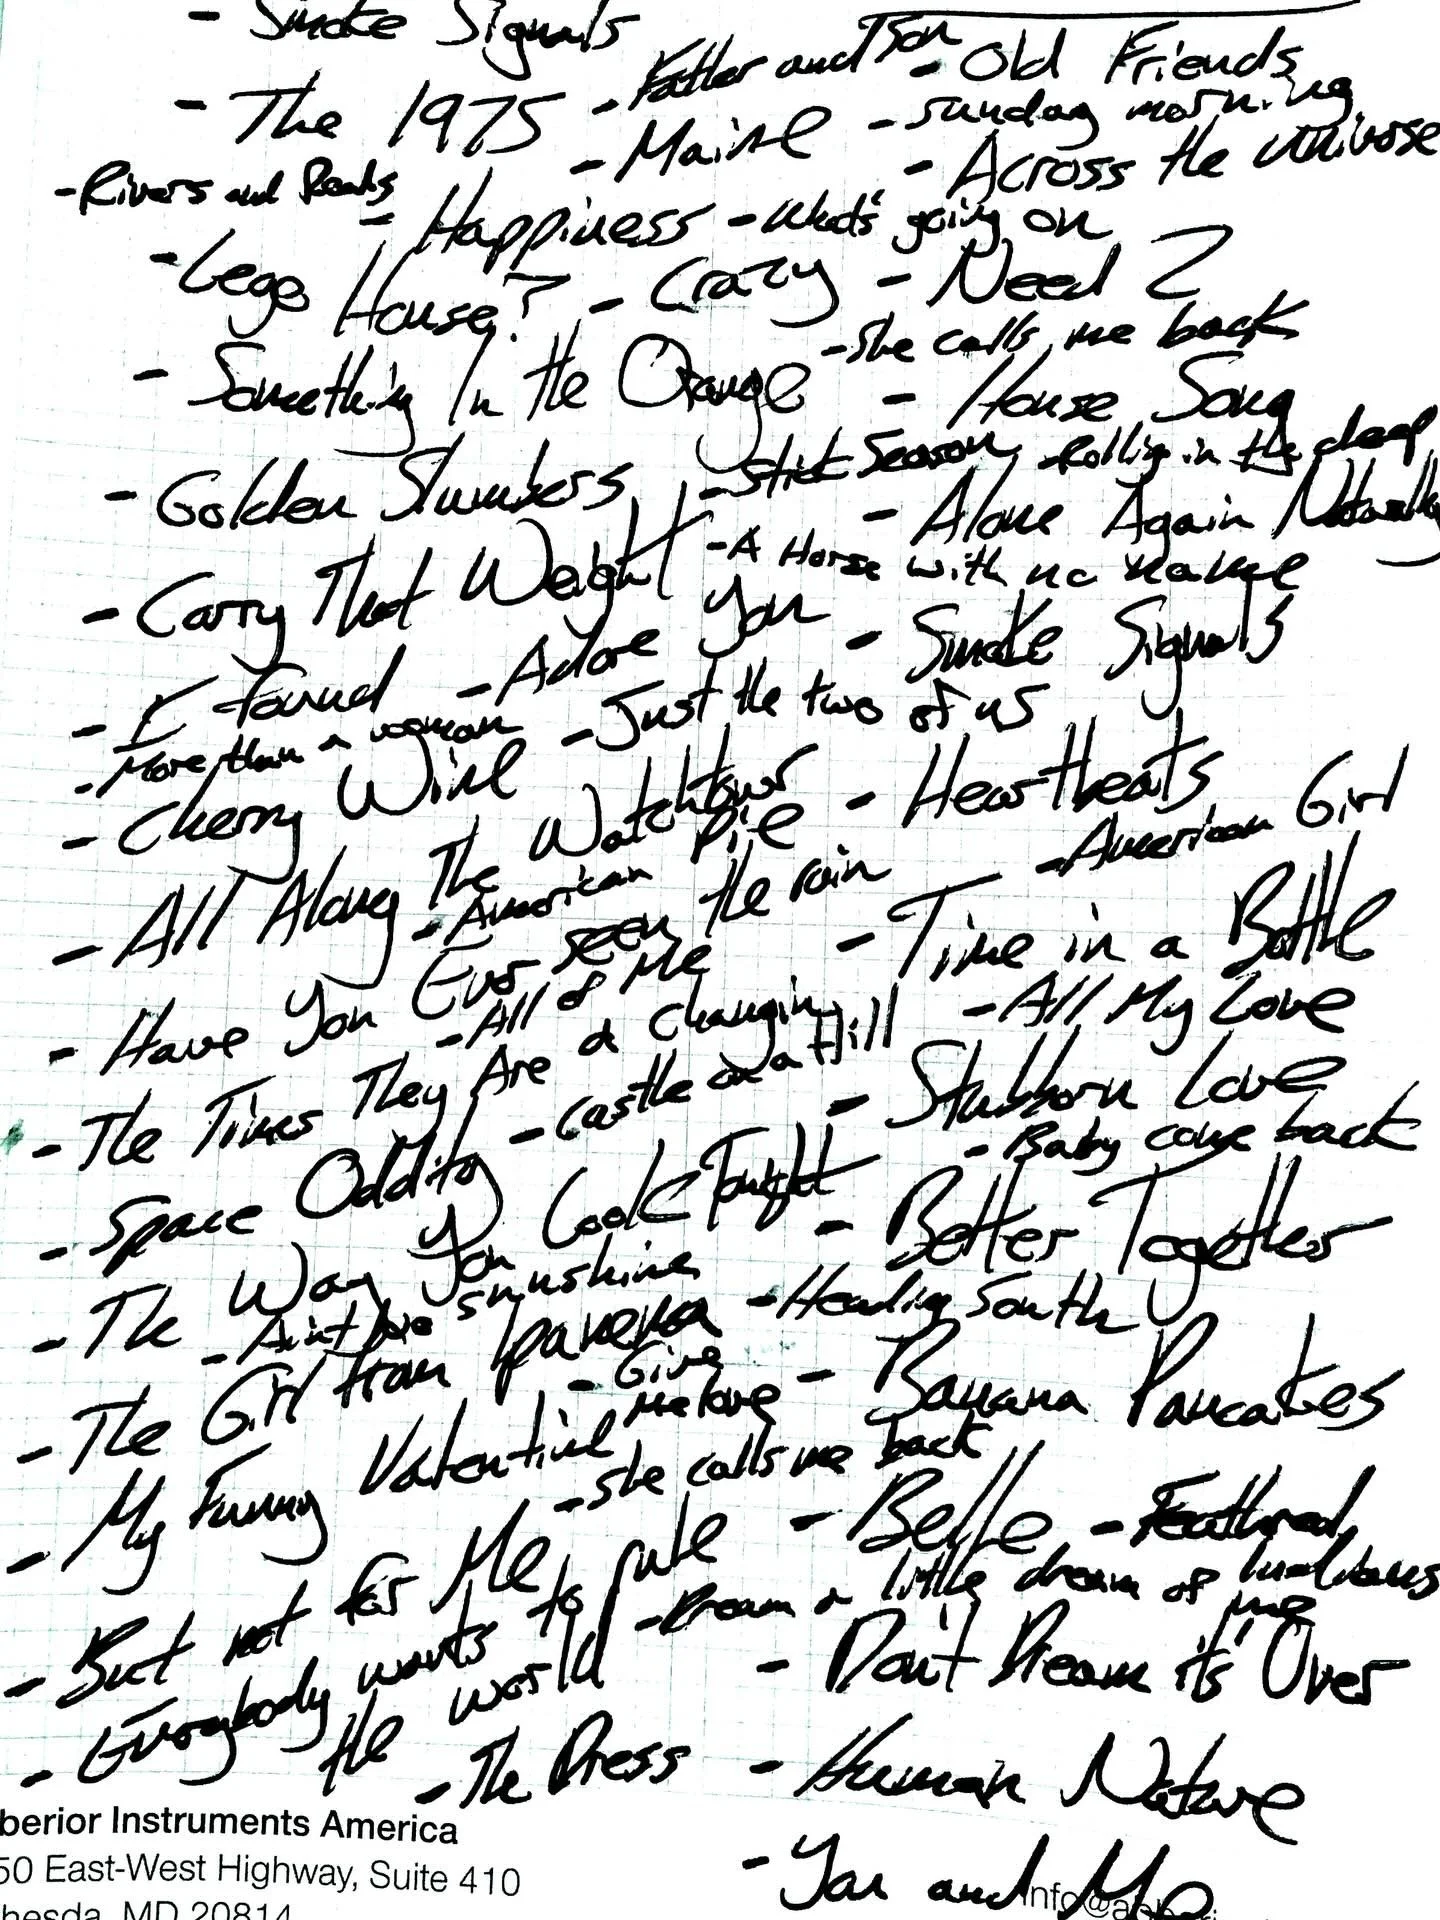 - Smoke Signals
- Father and Son
- Old Friends
- The 1975
- Maine
- Sunday morning
- Across the universe
- Rivers and Roads
- Happiness
- What's going on
- Lego House?
- Crazy
- Need 2
- She calls me back
- Something In the Orange
- House Song
- Stick Season
- Rolling in the deep
- Golden Slumbers
- Alone Again Naturally
- A Horse with no name
- Carry That Weight
- Adore You
- Smoke Signals
- I Found
- Just the two of us
- More than a woman
- Cherry Wine
- Heartbeats
- American Girl
- All Along The Watchtower
- American Pie
- Time in a Bottle
- Have You Ever seen the rain
- All of Me
- All My Love
- The Times They Are a Changin
- Castle on a Hill
- Stubborn Love
- Baby come back
- Space Oddity
- The Way You Look Tonight
- Better Together
- Ain't no sunshine
- Heading South
- The Girl From Ipanema
- Give Me love
- Banana Pancakes
- My Funny Valentine
- She calls me back
- Belle
- Feathered Indians
- But not for Me
- Dream a little dream of me
- Everybody wants to rule the world
- Don't Dream it's Over
- The Dress
- Human Nature
- You and Me
berior Instruments America
50 East-West Highway, Suite 410
hesda, MD 20814